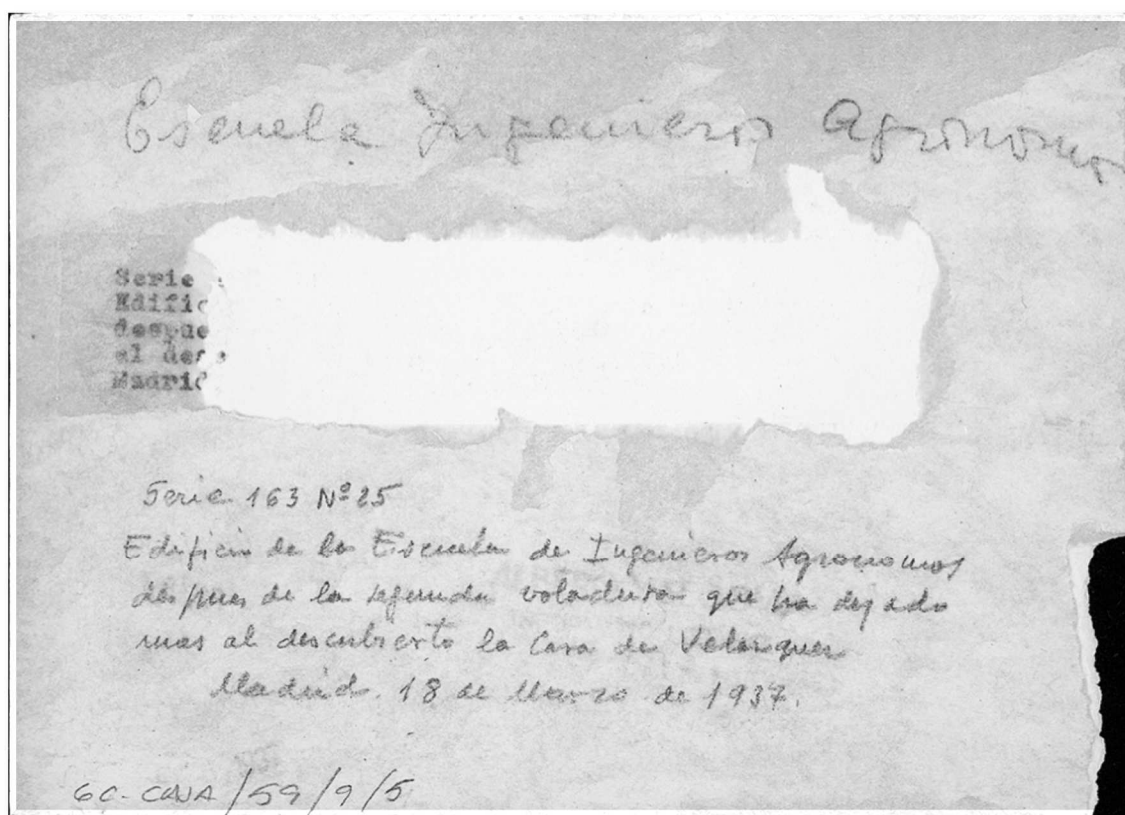 Escuela Ingenieros Agronomos
Serie
Edific
despue
al des
Madrid
Serie 163 Nº 25
Edificio de la Escuela de Ingenieros Agronomos
despues de la segunda voladura que ha dejado
mas al descubierto la Casa de Velazquez
Madrid. 18 de Marzo de 1937.
GC-CAJA/59/9/5